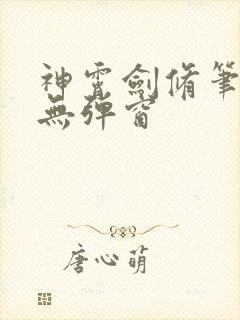 神霄劍脩筆
無彈窗
唐心萌